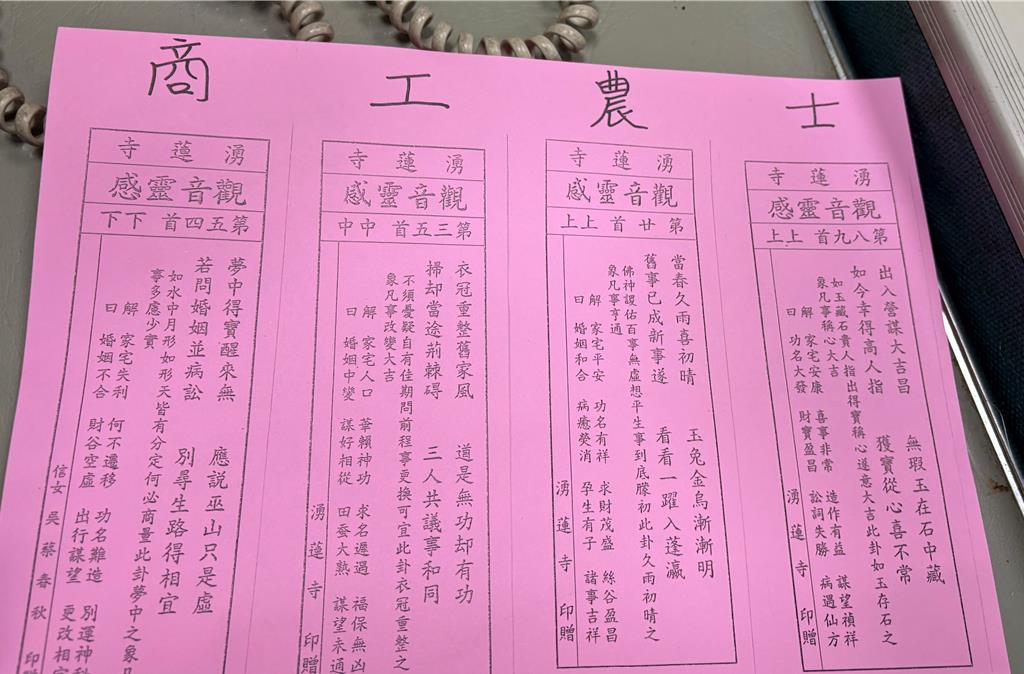 士
湧蓮寺
觀音靈感
第八九首 上上
出入營謀大吉昌 無瑕玉在石中藏
如今幸得高人指 獲寶從心喜不常
如玉藏石貴人指出得寶稱心遂意大吉此卦如玉存石之
象凡事稱心大吉
解曰
家宅安康 喜事非常 造作有益 謀望禎祥
功名大發 財寶盈昌 訟詞失勝 病遇仙方
湧蓮寺 印贈
農
湧蓮寺
觀音靈感
第廿首 上上
當春久雨喜初晴 玉兔金烏漸漸明
舊事已成新事遂 看看一躍入蓬瀛
佛神護佑百事無虛想平生事到底朦初此卦久雨初晴之
象凡事亨通
解曰
家宅平安 功名有祥 求財茂盛 絲谷盈昌
婚姻和合 病癒熒消 孕生有子 諸事吉祥
湧蓮寺 印贈
工
湧蓮寺
觀音靈感
第三五首 中中
衣冠重整舊家風 道是無功却有功
掃却當途荊棘碍 三人共議事和同
不須憂疑自有佳期問前程事更換可宜此卦衣冠重整之
象凡事改變大吉
解曰
家宅人口 葷賴神功 求名遲遇 福保無凶
婚姻中變 謀好相從 田蚕大熟 謀望未通
湧蓮寺 印贈
商
湧蓮寺
觀音靈感
第五四首 下下
夢中得寶醒來無 應説巫山只是虛
若問婚姻並病訟 別尋生路得相宜
如水中月形如形天皆有分定何必商量此卦夢中之象凡
事多慮少實
解曰
家宅失利 何不遷移 功名難造 別運神
婚姻不合 財谷空虛 出行謀望 更改相
信女 吳蔡春秋 印